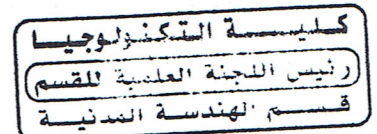 كليـــة التكنولوجيا
رئيس اللجنة العلمية للقسم
قسم الهندسة المدنية